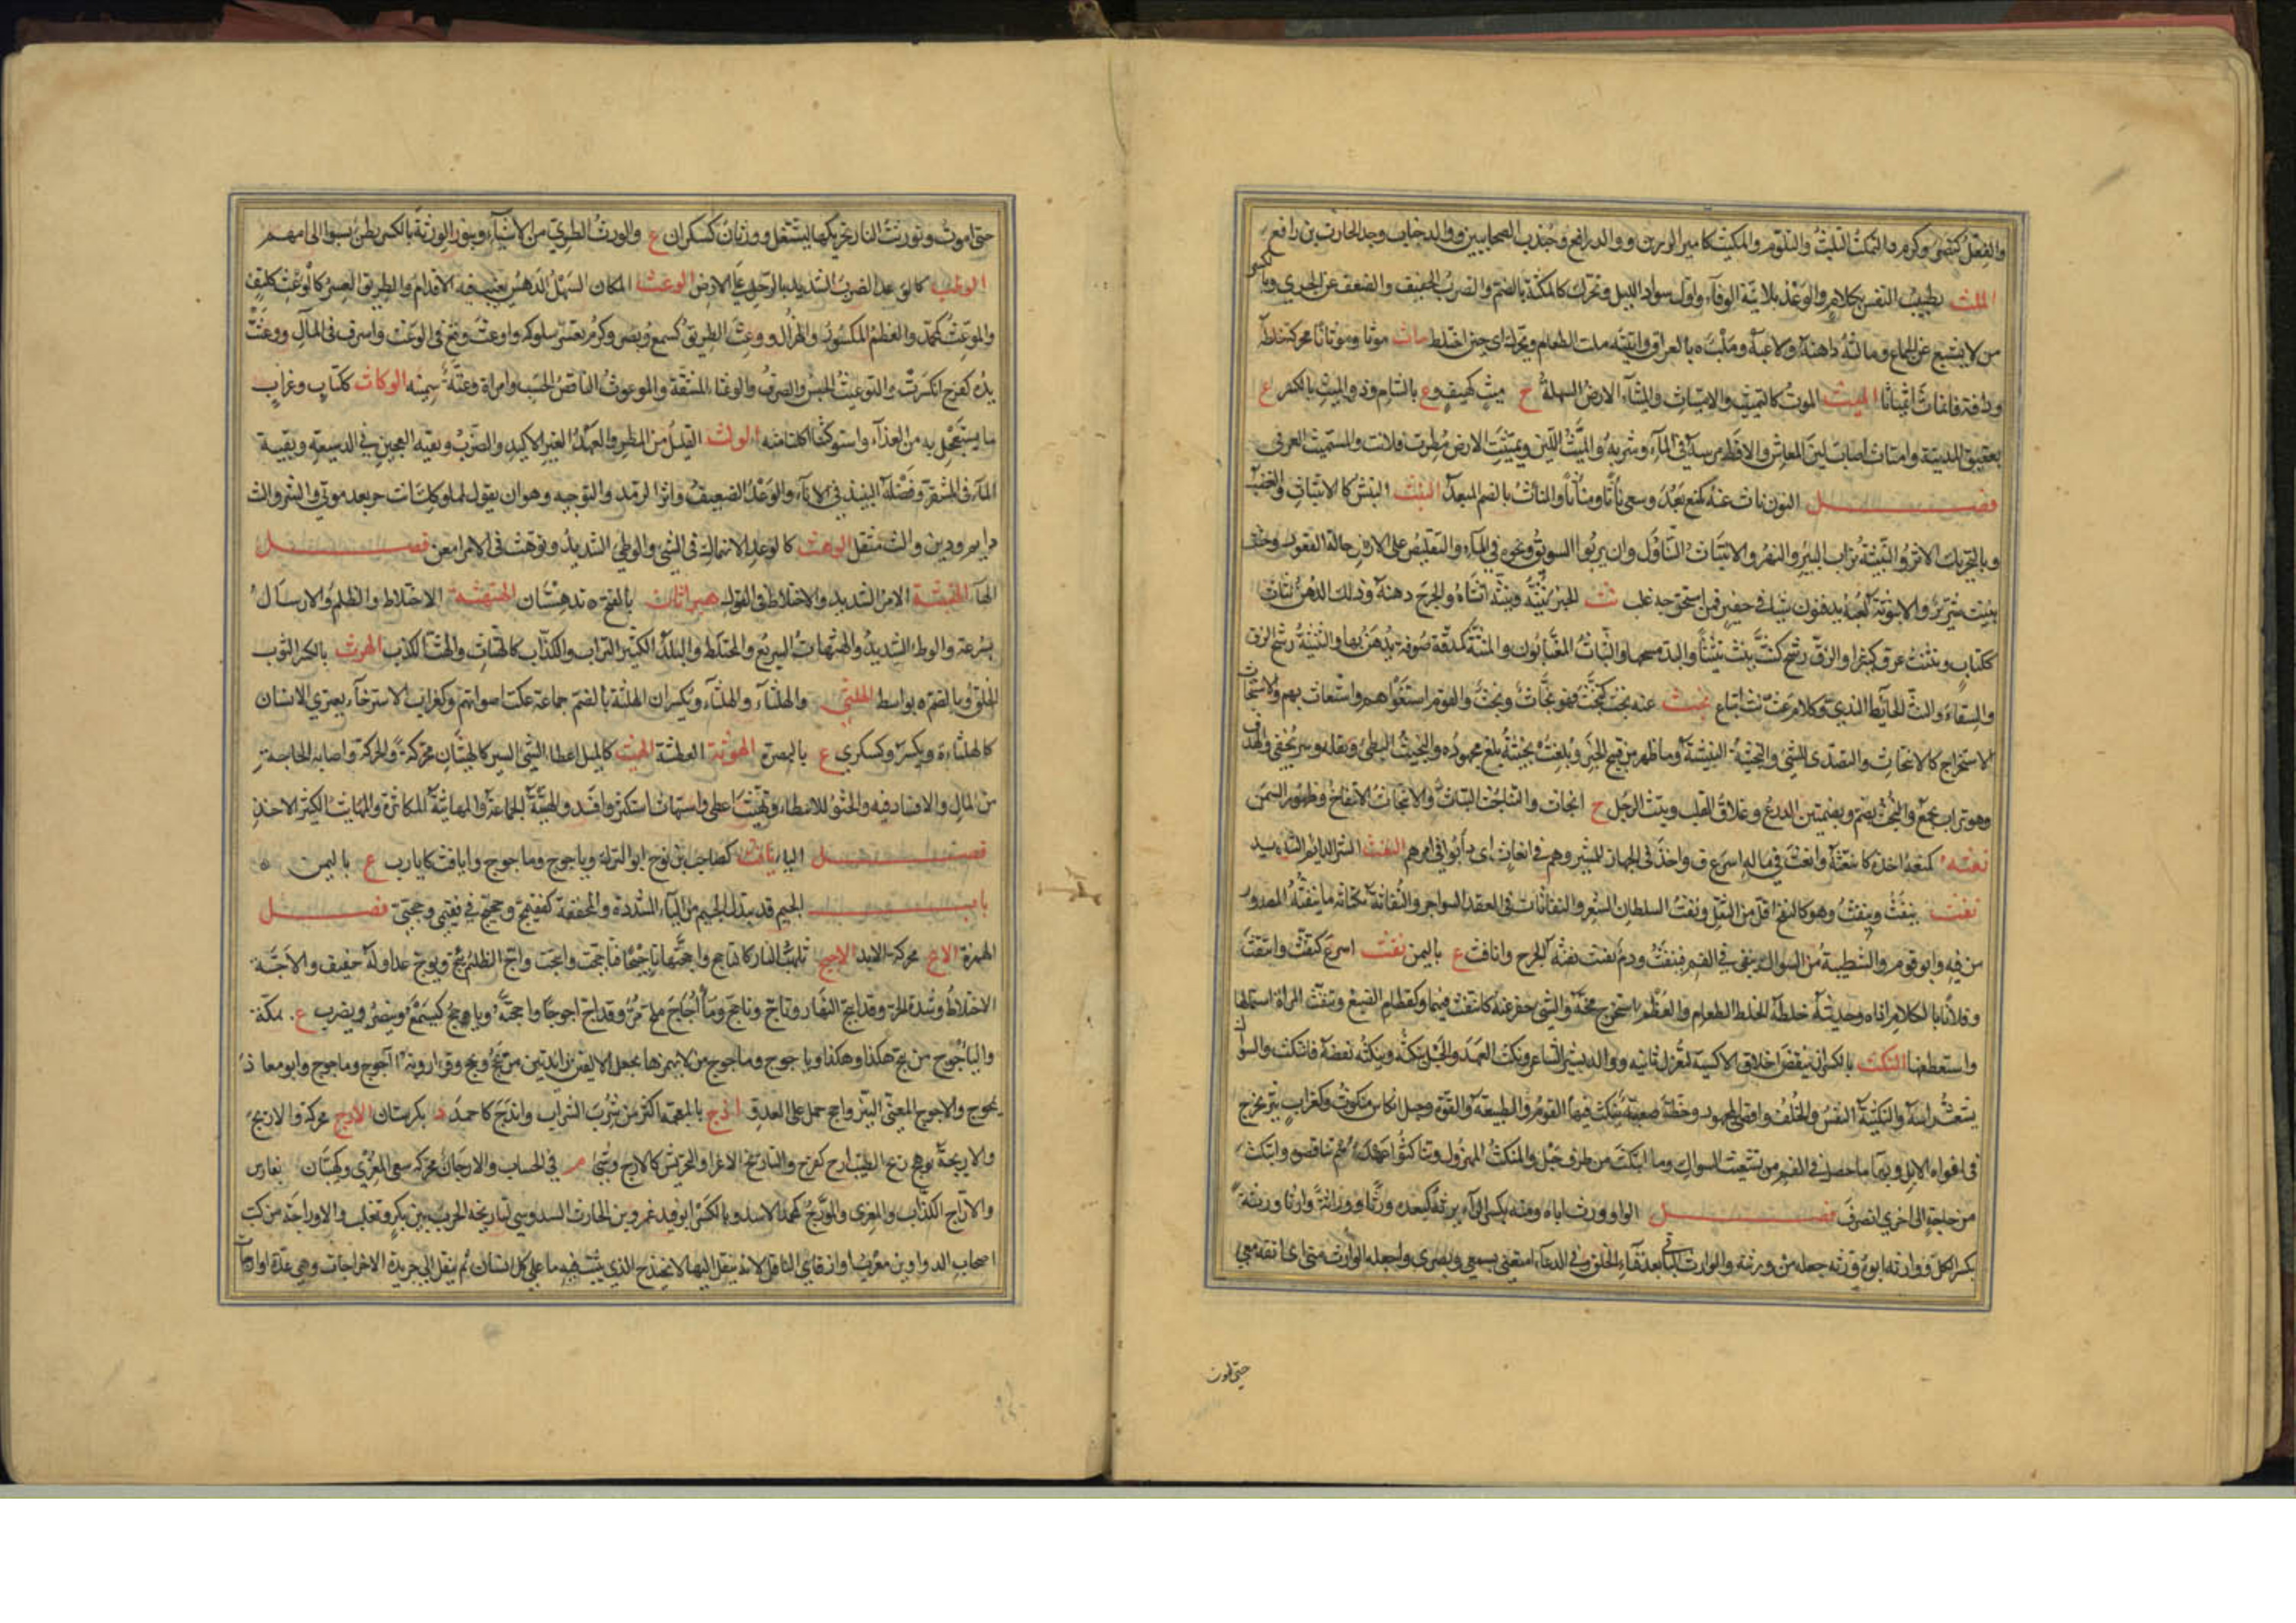 والفعل كنصر وكرم والتمكث التلبث والتلوم والمكيث كامير الرزين ووالد رافع وجندب الصحابيين ووالد جناب وجد الحارث بن رافع
الملث تطييب النفس بكلام والوعد بلا نية الوفاء واول سواد الليل ويحرك كالملثة بالضم والضرب الخفيف والضعف عن الجري وما
من لا يشبع عن الجماع ومالثه داهنه ولاعبه وملبثاه بالعراق واتيته ملث الظلام ويحرك اى حين اختلط ماث موثا وموثانا محركة خلطه
ودافه فانماث انمياثا الميث الموث كالتمييث والامتياث والميثاء الارض السهلة ج ميث كهيف وع بالشام وذو الميث بالكسر ع
بعقيق المدينة وامتاث اصاب لين المعاش والاقط مرسه في الماء وشربه والميث اللين وتميثت الارض مطرت فلانت والمستميث الغرقى
فصل النون نأث عنه كمنع بعد وسعى نأثا ومنأثا والمنأث بالضم المبعد النبث النبش كالانتباث والغضب
وبالتحريك الاثر والنبيثة تراب البئر والنهر والانتباث التناول وان يربوا السويق ونحوه في الماء والتقليص على الارض حالة القعود وخبيث
نبيث شرير والانبوثة لعبة يدفنون شيئا في حفير فمن استخرجه غلب نث الخبر ينثه وينثه افشاه والجرح دهنه وذلك الدهن نثاث
ككتاب ونثنث عرق كثيرا والزق رشح كنث ينث نثيثا واليد مسحها والنثاث المغتابون والمنثة كمدقة صوفة يدهن بها والنثيثة رشح الزق
والسقاء والنث الحائط الندي وكلام غث نث اتباع نجث عنه بحث كتنجث فهو نجاث ونجث والقوم استغواهم واستغاث بهم والاستنجاث
الاستخراج كالانتجاث والتصدى للشئ والنجيثة النبيثة وما ظهر من قبيح الخبر وبلغت نجيثته بلغ مجهوده والنجيث البطئ وبقلة وسر يخفى والهدف
وهو تراب يجمع والنجث بضم وبضمتين الدرع وغلاف القلب وبيت الرجل ج انجاث والتناجث التباث والانتجاث الانتفاخ وظهور السمن
نعثه كمنعه اخذه كانتعثه وانعث في ماله اسرع واخذ في الجهاز للمسير وهم في انعاث اى دأبوا في امرهم النغث الشر الدائم الشديد
نفث ينفث وينفث وهو كالنفخ اقل من التفل ونفث الشيطان الشعر والنفاثات في العقد السواحر والنفاثة ككناسة ما ينفثه المصدور
من فيه وابو قوم والشطيبة من السواك تبقى في الفم فتنفث ودم نفيث نفثه الجرح وانافث ع باليمن نقث اسرع كنقث وانتقث
وفلانا بالكلام اذاه وحديثه خلطه كخلط الطعام والعظم استخرج مخه والشئ حفر عنه كانتقث فيهما وكقطام الضبع وتنقث المراة استمالها
واستعطفها النكث بالكسر ان ينقض اخلاق الاكسية لتغزل ثانية ووالد بشير الشاعر ونكث العهد والحبل ينكثه وينكثه نقضه فانتكث والسواك
يتشعث راسه والنكيثة النفس والخلف واقصى المجهود وخطة صعبة ينكث فيها القوم والطبيعة والقوة وحبل انكاث منكوث وكغراب بثر يخرج
فى افواه الابل وبهاء ما حصل في الفم من تشعيث السواك وما انتكث من طرف حبل والمنتكث المهزول وتناكثوا عهدهم تناقضوه وانتكث
من حاجة الى اخرى انصرف فصل الواو ورث اباه ومنه بكسر الراء يرثه كيعده ورثا ووراثة وارثا ورثة
بكسر الكل واورثه ابوه وورثه جعله من ورثته والوارث الباقي بعد فناء الخلق وفي الدعاء امتعني بسمعي وبصرى واجعله الوارث مني اى ابقه معي
حتى اموت
حتى اموت وتوريث النار تحريكها لتشتعل وورثان كسكران ع والورث الطري من الاشياء وبنو الورثة بالكسر بطن نسبوا الى امهم
الوطث كالوعد الضرب الشديد بالرجل على الارض الوعث المكان السهل الدهس تغيب فيه الاقدام والطريق العسر كالوعث ككتف
والموعث كمحمد والعظم المكسور والهزال ووعث الطريق كسمع وبصر وكرم تعسر سلوكه واوعث وقع في الوعث واسرف في المال ووعثت
يده كفرح انكسرت والتوعيث الحبس والصرف والوعثاء المشقة والموعوث الناقص الحسب وامراة وعثة سمينة الوكاث ككتاب وغراب
ما يستعجل به من الغداء واستوكثنا اكلنا منه الولث القليل من المطر والعهد الغير الاكيد والضرب وبقية العجين في الدسيعة وبقية
الماء في المشقر وفضلة النبيذ في الاناء والوعد الضعيف واثر الرمد والتوجيه وهو ان يقول لمملوكه انت حر بعد موتي والشر والث
دائم ودين والث مثقل الوهث كالوعد الانهماك في الشئ والوطئ الشديد وتوهث في الامر امعن فصل
الهاء الهبثة الامر الشديد والاختلاط في القول هبراثان بالفتح ة بدهستان الهثهثة الاختلاط والظلم والارسال
بسرعة والوطء الشديد والهثهاث السريع والمختلط والبلد الكثير التراب والكذاب كالهثاث والهث الكذب الهرث بالكسر الثوب
الخلق وبالضم ة بواسط الهلثى والهلثاء والهلثاء ويكسران الهلثة بالضم جماعة علت اصواتهم وكغراب الاسترخاء يعترى الانسان
كالهلثاءة ويكسر وكسكرى ع بالبصرة الهوثة العطشة الهيث كالميل اعطاء الشئ اليسير كالهيثان محركة والحركة واصابة الحاجة
من المال والافساد فيه والحثو للاعطاء وتهيث اعطى واستهاث استكثر وافسد والهيثة الجماعة والمهايثة المكاثرة والمهايث الكثير الاخذ
فصل الياء يافث كصاحب بن نوح ابو الترك وياجوج وماجوج وايافث كايارب ع باليمن
باب الجيم قد تبدل الجيم من الياء المشددة والمخففة كفقيمج وحجتج في فقيمي وحجتي فصل
الهمزة الأج محركة الابد الاجيج تلهب النار كالتاجج واججتها تاجيجا فتاججت واتجت واج الظليم يئج ويؤج عدا وله حفيف والاجة
الاختلاط وشدة الحر وقد ائتج النهار وتاج وتاجج وماء اجاج ملح مر وقد اج اجوجا واججته وياجج كيسمع وينصر ويضرب ع بمكة
والياجوج من يئج هكذا وهكذا وياجوج وماجوج من لا يهمزهما يجعل الالفين زائدتين من يجج ومجج وقرا روبة آجوج وماجوج وابو معاذ
يمجوج والاجوج المضئ النير واج حمل على العدو اذج بالمعجمة اكثر من شرب الشراب وايذج كاحمد د بكرستان الارج محركة والاريج
والاريجة توهج ريح الطيب ارج كفرح والتاريج الاغراء والتحريش كالارج وشئ م في الحساب والارجان محركة سعى المغري وكهيبان د بفارس
والاراج الكذاب والمغري والمؤرج كمحمد الاسد وبالكسر ابو فيد عمرو بن الحارث السدوسي لتاريجه الحرب بين بكر وتغلب والاوارجة من كتب
اصحاب الدواوين معرب اواره اي الناقل لانه ينقل اليها الانجيذج الذي يثبت فيه ما على كل انسان ثم ينقل الى جريدة الاخراجات وهي عدة اوارجات